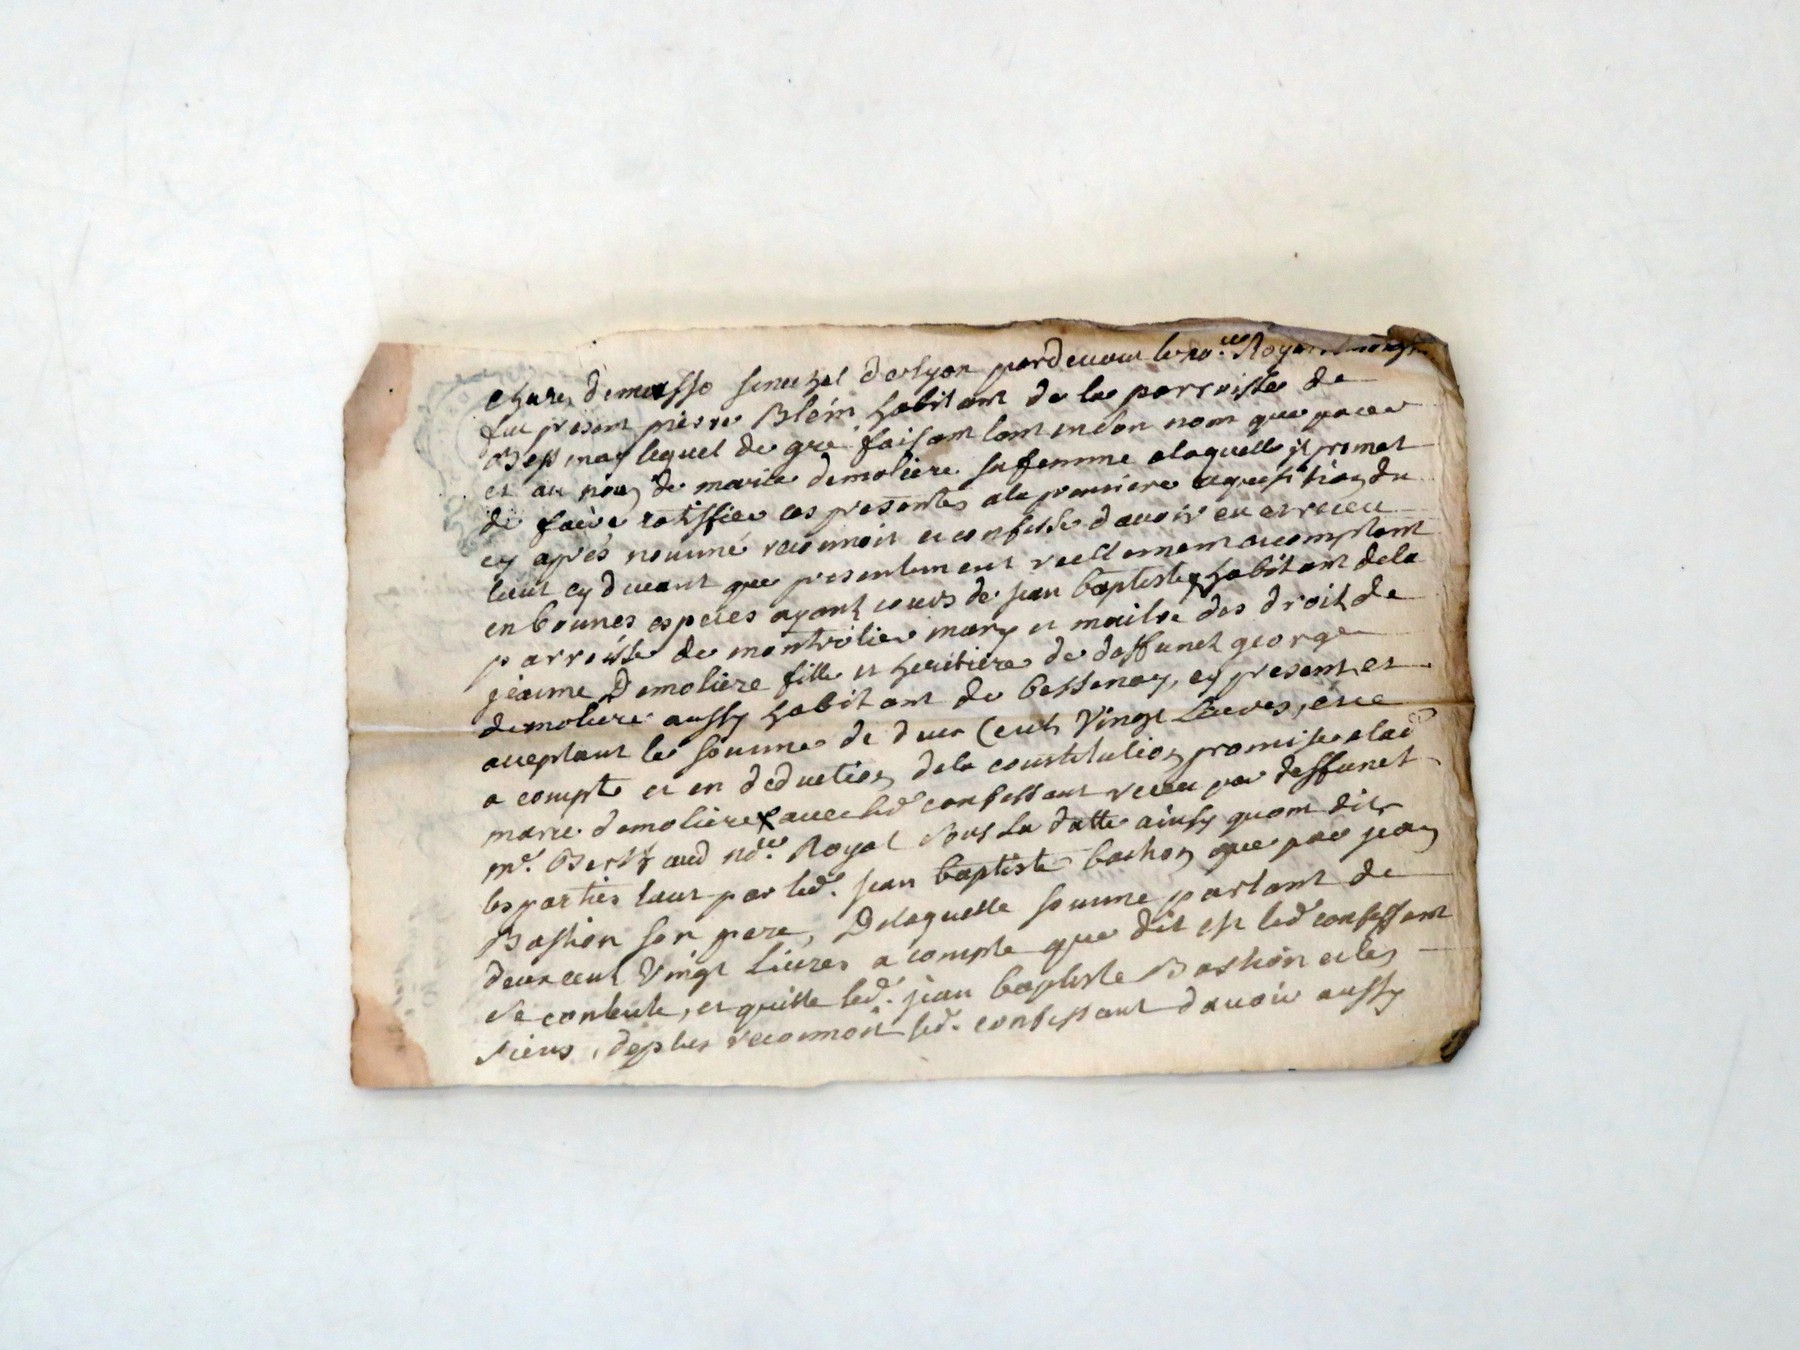 senechal de lyon pardevant le no.re Royal
fut present pierre Blein habitant de la parroisse de
Bessenay lequel de gré faisant tant en son nom que
et au nom de marie demoliere sa femme a laquelle il promet
de faire ratiffier ces presentes a la premiere requisition du
cy après nommé reconnoit et confesse d'avoir eu et receu
tant cy devant que presentement reellement a comptant
en bonnes especes ayant cours de jean baptiste x habitant de la
parroisse de montrotier mary et maitre des droit de
jeanne Demoliere fille et heritiere de deffunct george
demoliere aussy habitant de bessenay, cy present et
aceptant la somme de deux Cents Vingt Livres, et ce
a compte et en deduction de la constitution promise a lad
marie demoliere x avec led confessant receu par deffunct
m.e no.re Royal sous sa datte ainsy quont dit
les parties tant par led. jean baptiste bachon que par jean
Bashon son pere, De laquelle somme partant de
deux cent Vingt Livres a compte que dit est led confessant
se contente, et quitte led. jean baptiste Bashon et les
siens, de plus reconnoit led. confessant d'avoir aussy